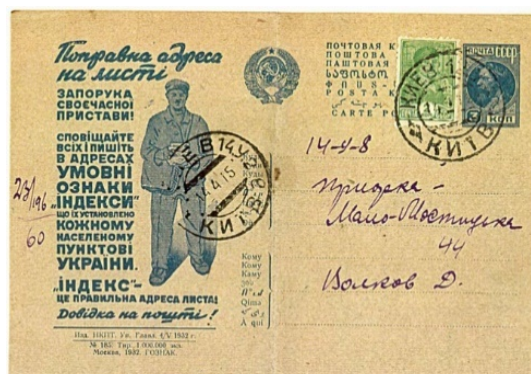 Поправна адреса
на листі
ЗАПОРУКА
СВОЄЧАСНОЇ
ПРИСТАВИ!
СПОВІЩАЙТЕ
ВСІХ І ПИШІТЬ
В АДРЕСАХ
УМОВНІ
ОЗНАКИ
„ІНДЕКСИ"
ЩО ЇХ УСТАНОВЛЕНО
КОЖНОМУ
НАСЕЛЕНОМУ
ПУНКТОВІ
УКРАЇНИ.
„ІНДЕКС"–
ЦЕ ПРАВИЛЬНА АДРЕСА ЛИСТА!
Довідка на пошті!
Изд. НКПТ. Ув. Главл. 4/V 1932 г.
№ 185. Тир. 1.000.000 экз.
Москва, 1932. ГОЗНАК.
60
ПОЧТОВАЯ К
ПОШТОВА
ПАШТОВАЯ
POSTA K
CARTE PO
ПОЧТА СССР
КОП
КИЕВ
КИЇВ
14.4.15
КИЇВ
Кому
Кому
Каму
Qima
A qui
14-У-8
Приорка -
Мало-Мостицька
44
Волков Д.